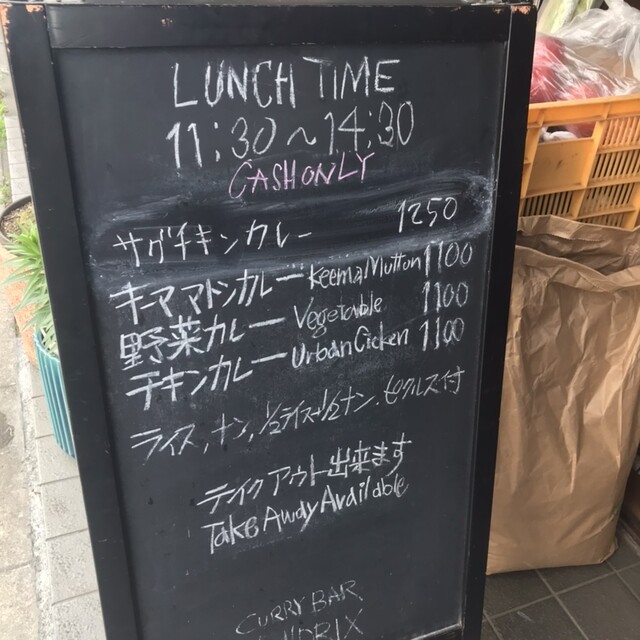 LUNCH TIME
11:30～14:30
CASH ONLY
サグチキンカレー 1250
キーママトンカレー Keema Mutton 1100
野菜カレー Vegetable 1100
チキンカレー Urban Cicken 1100
ライス,ナン,1/2ライス+1/2ナン.ピクルス付
テイクアウト出来ます
Take Away Available
CURRY BAR